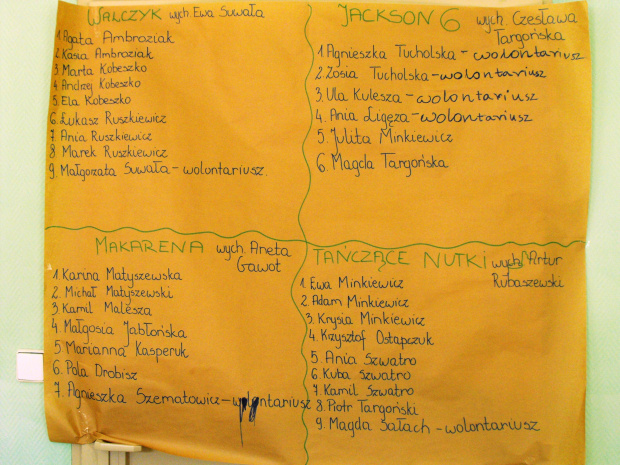 WALCZYK wych. Ewa Suwała
1. Agata Ambroziak
2. Kasia Ambroziak
3. Marta Kobeszko
4. Andrzej Kobeszko
5. Ela Kobeszko
6. Łukasz Ruszkiewicz
7. Ania Ruszkiewicz
8. Marek Ruszkiewicz
9. Małgorzata Suwała - wolontariusz.
JACKSON 6 wych. Czesława
Targońska
1. Agnieszka Tucholska - wolontariusz
2. Zosia Tucholska - wolontariusz
3. Ula Kulesza - wolontariusz
4. Ania Ligęza - wolontariusz
5. Julita Minkiewicz
6. Magda Targońska
MAKARENA wych. Aneta
Gawot
1. Karina Matyszewska
2. Michał Matyszewski
3. Kamil Malesza
4. Małgosia Jabłońska
5. Marianna Kasperuk
6. Pola Drobisz
7. Agnieszka Szematowicz - wolontariusz
TAŃCZĄCE NUTKI wych. Artur
Rubaszewski
1. Ewa Minkiewicz
2. Adam Minkiewicz
3. Krysia Minkiewicz
4. Krzysztof Ostapczuk
5. Ania Szwatro
6. Kuba Szwatro
7. Kamil Szwatro
8. Piotr Targoński
9. Magda Sałach - wolontariusz